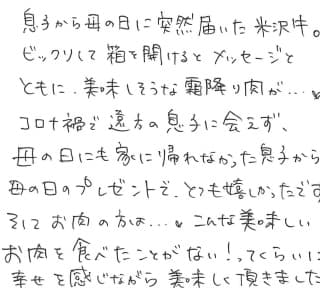 息子から母の日に突然届いた米沢牛。
ビックリして箱を開けるとメッセージと
ともに、美味しそうな霜降り肉が…♥
コロナ禍で遠方の息子に会えず、
母の日にも家に帰れなかった息子から
母の日のプレゼントで、とても嬉しかったです
そしてお肉の方は…♥こんな美味しい
お肉を食べたことがない！ってくらいに
幸せを感じながら美味しく頂きました